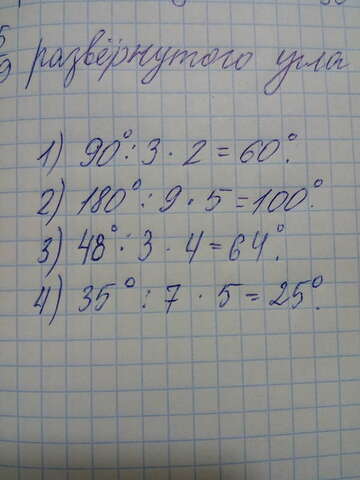 5
9 развёрнутого угла
1) 90° : 3 · 2 = 60°.
2) 180° : 9 · 5 = 100°.
3) 48° : 3 · 4 = 64°.
4) 35° : 7 · 5 = 25°.